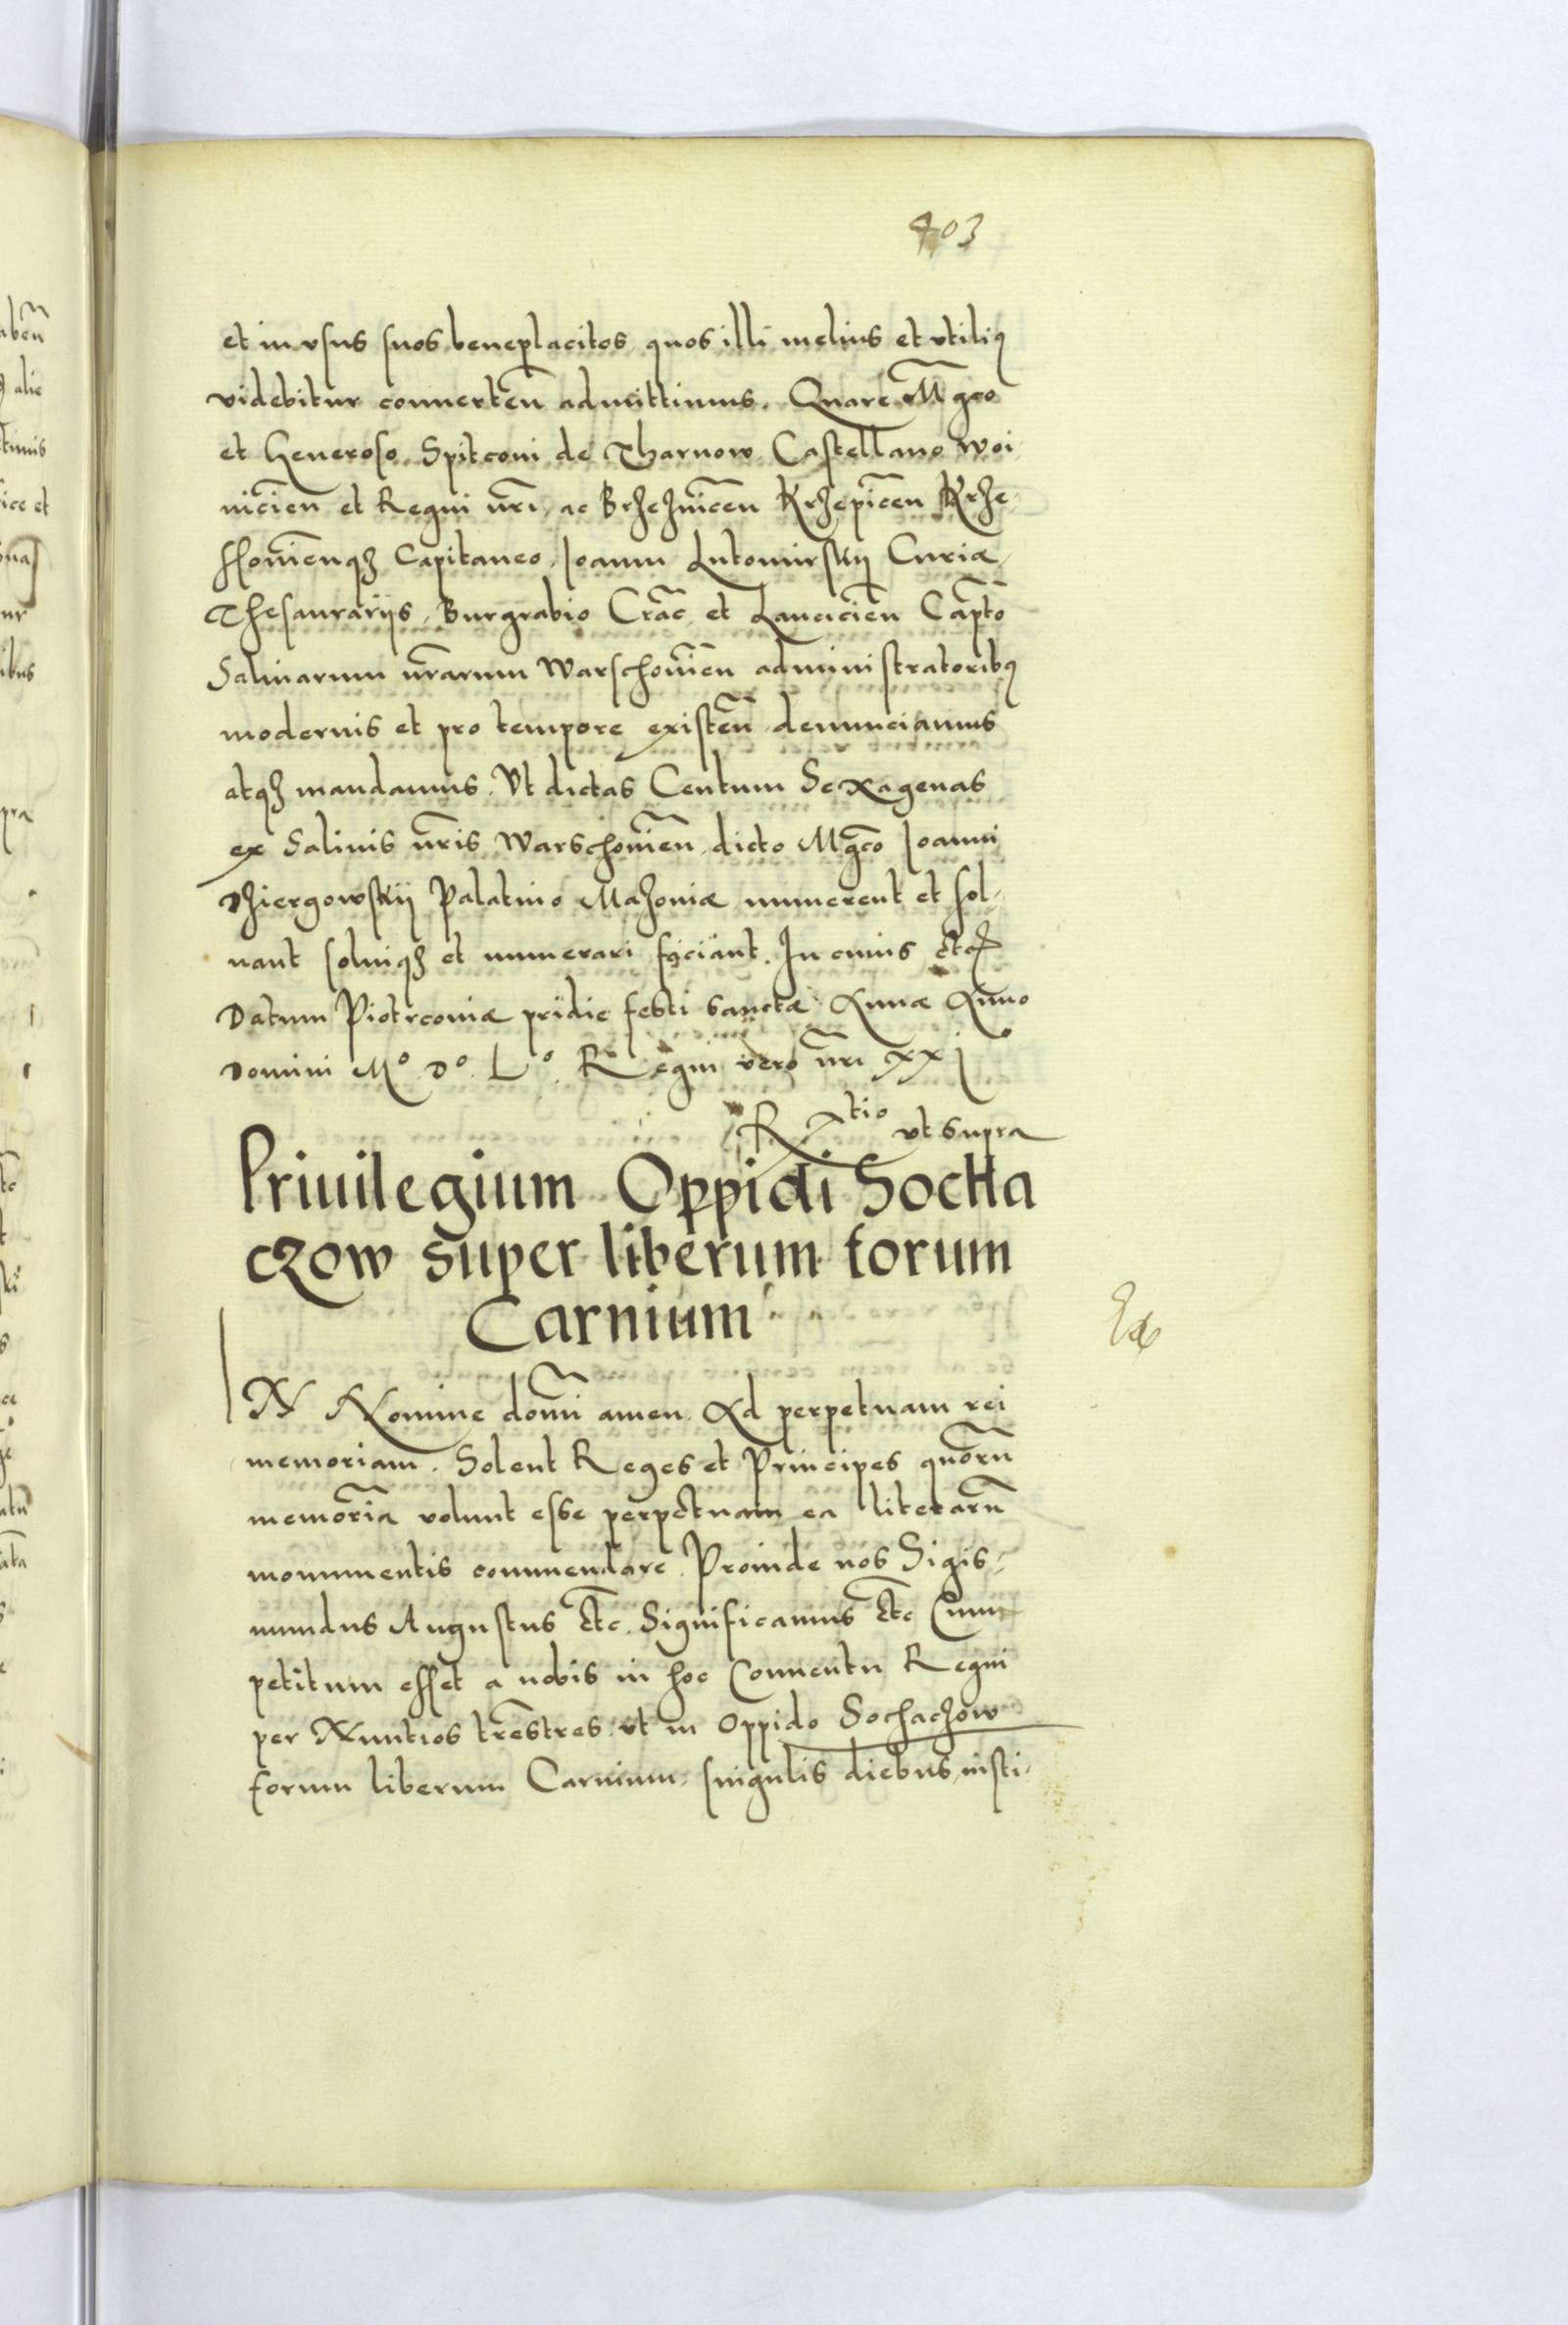 403
et in vsus suos beneplacitos quos illi melius et vtiliꝰ
videbitur conuerteñ admittimus. Quare Mgco
et Generoso Spitconi de Tharnow Castellano Woi-
nicień et Regni nri, ac Brzezniceñ Krzepiceñ Krze-
ssowieñqȝ Capitaneo, Joanni Lutomirskij Curiæ
Thesaurarijs, Burgrabio Crac̃ et Lancicieñ Capto
Salinarum nrarum Warschouieñ administratoribꝰ
modernis et pro tempore existeñ denunciamus
atqȝ mandamus. Vt dictas Centum Sexagenas
ex Salinis nris Warschouieñ dicto Mgco Joanni
Dziergowskij Palatino Mazouiæ numerent et sol-
uant soluiqȝ et numerari faciant. In cuius etc
Datum Piotrcouiæ pridie festi sanctæ Annæ Anno
Domini Mº Dº Lº Regni vero nri XXj
Rtio vt supra
Priuilegium Oppidi Socha
czow super liberum forum
Carnium
IN Nomine domi amen. Ad perpetuam rei
memoriam. Solent Reges et Principes quorũ
memoria volunt esse perpetuam ea literarũ
monumentis commendare. Proinde nos Sigis-
mundus Augustus etc. Significamus etc Cum
petitum esset a nobis in hoc Conuentu Regni
per Nuntios trestres vt in oppido Sochaczow
forum liberum Carnium singulis diebus insti-